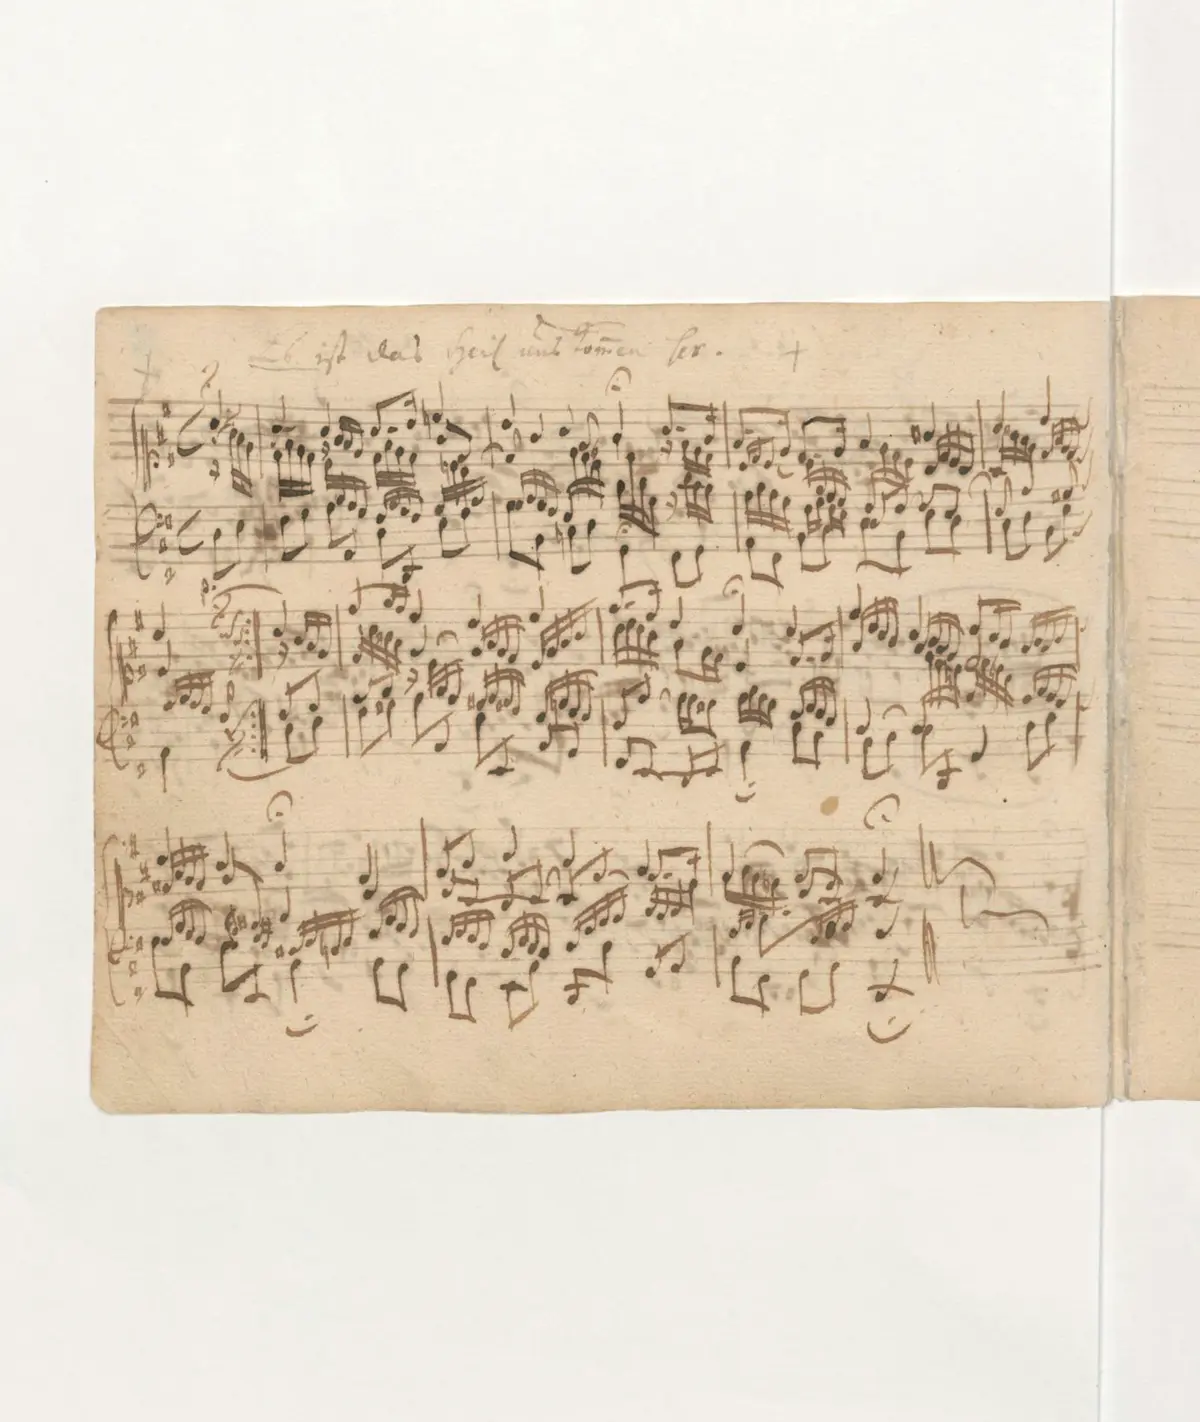 Es ist das Heil uns kom̅en her.